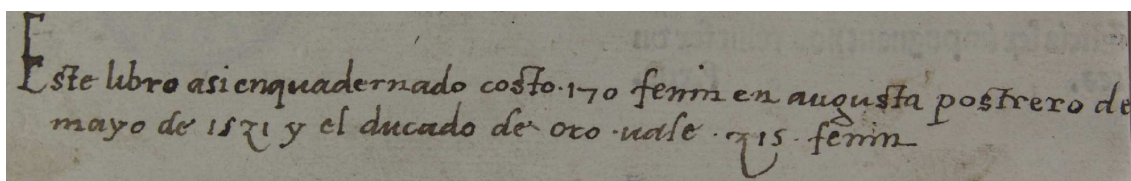 Este libro asi enquadernado costo .170 fenin en augusta postrero de
mayo de 1531 y el ducado de oro .vale .315. fenin